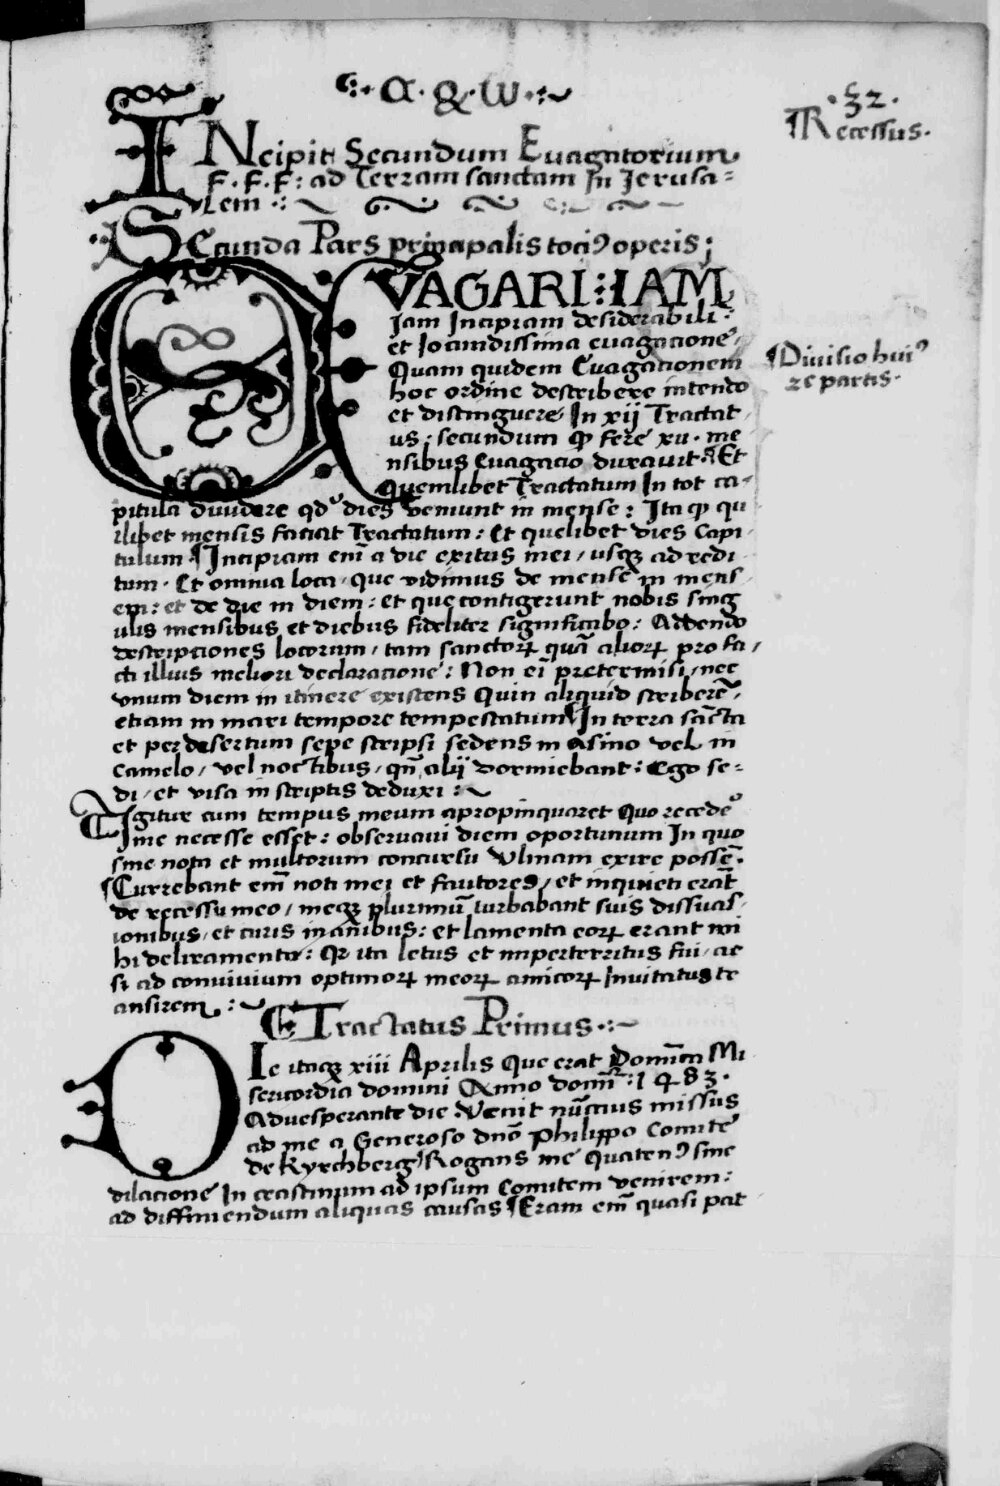 ·:· α · & · ω ·:·
32.
Recessus.
INcipit Secundum Euagatorium
F. F. F: ad Terram sanctam In Jerusa=
lem
Secunda Pars principalis toci9 operis;
EVAGARI: IAM
Jam Incipiam desiderabili
et Jocundissima euagacione,
Diuisio hui9
Quam quidem Euagationem
2e partis.
hoc ordine describere intendo
et distinguere In xij Tractat
us: secundum ꝙ fere xii. me
nsibus Euagacio durauit ¶ Et
Quemlibet Tractatum In tot ca-
pitula diuidere qd' dies veniunt in mense: Ita ꝙ qu
ilibet mensis faciat Tractatum: Et quelibet dies Capi
tulum ¶ Incipiam em̄ a die exitus mei, usqꝫ ad redi
tum. Et omnia loca, que vidimus de mense in mens
em: et de die in diem: et que contigerunt nobis sing
ulis mensibus et diebus fideliter significabo: Addendo
descripciones locorum, tam sanctoꝝ quā alioꝝ pro fa,
cti illius meliori declaracione: Non em̄ pretermisi, nec
vnum diem in itinere existens Quin aliquid scriberē,
etiam in mari tempore tempestatum ¶ In terra sācta
et per desertum sepe scripsi sedens in asino vel in
Camelo, vel noctibus, qn̄ alij dormiebant: Ego se=
di, et visa in scriptis deduxi:~
Igitur cum tempus meum apropinquaret Quo recede'
me necesse esset: obseruaui diem oportunum In quo
sine nota et multorum concursu Vlmam exire possē.
¶ Currebant em̄ noti mei et fautores, et inquieti erāt
de recessu meo, meqꝫ plurimū turbabant suis dissuas,
ionibus, et curis inanibus: et lamenta eoꝝ erant mi
hi deliramenta: Qr ita letus et imperterritus fui, ac
si ad conuiuium optimoꝝ meoꝝ amicoꝝ Inuitatus tr
ansirem.:~
Tractatus Primus.:~
DIe itaqꝫ xiii Aprilis Que erat Domīca Mi
sericordia domini Anno domī: 1483.
Aduesperante die: Venit nūctius missus
ad me a Generoso dnō Philippo Comite
de Kyrchberg, Rogans me Quaten9 sine
dilacione In crastinum ad ipsum Comitem venirem:
ad diffiniendum aliquas causas ¶ Eram em̄ quasi pat